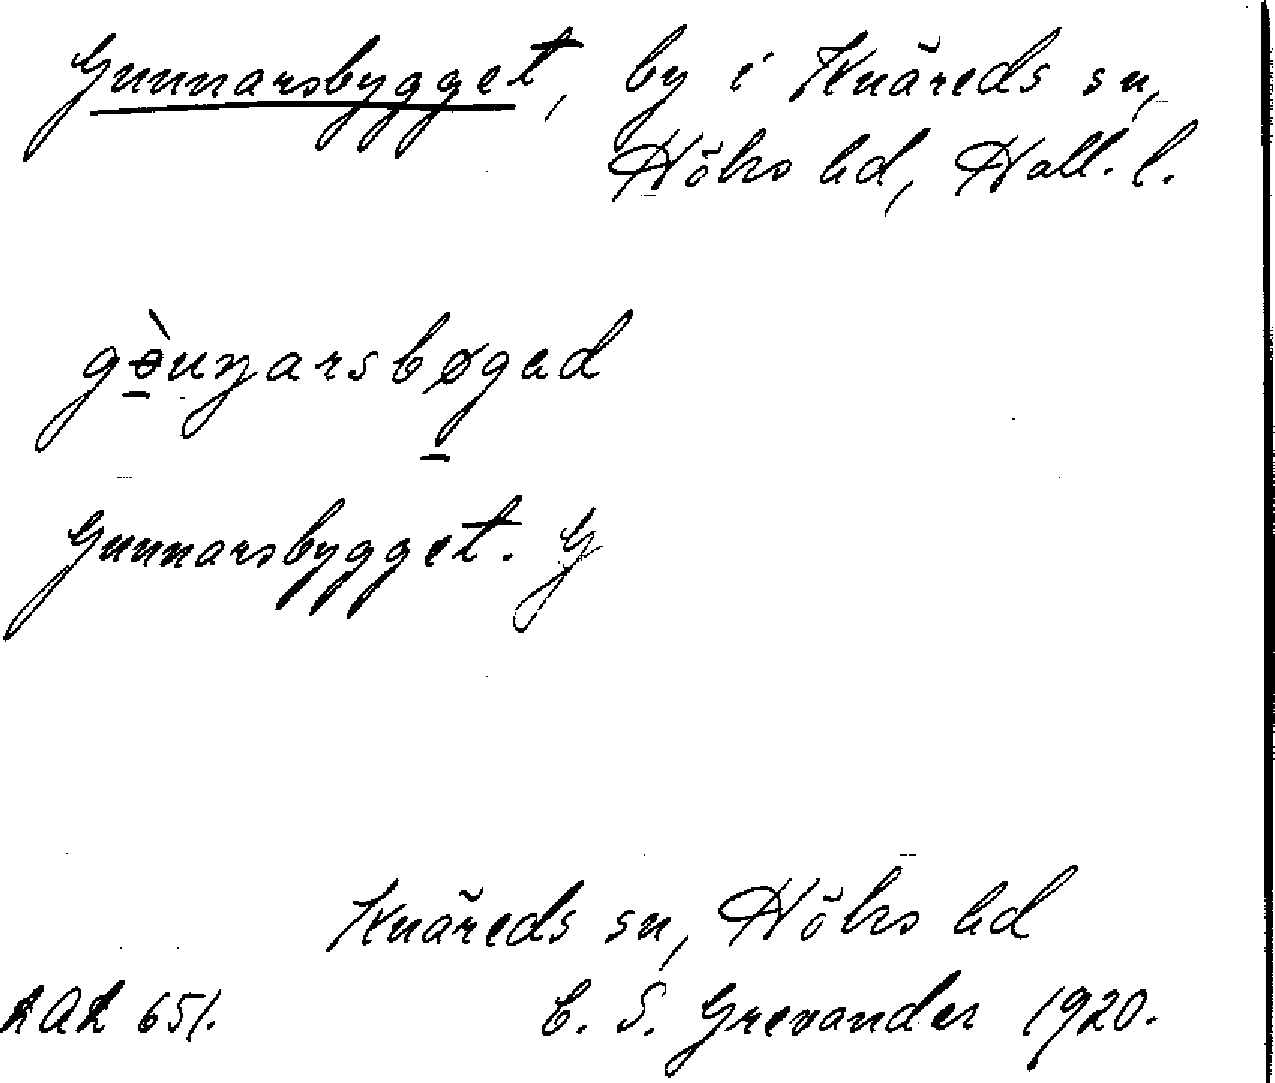 Gunnarsbygget, by i Knäreds sn,
Höks hd, Hall. l.
gɵ̱̀nŋarsbøgad
Gunnarsbygget. G
Knäreds sn, Höks hd
LAL 651.
E. S. Grevander 1920.